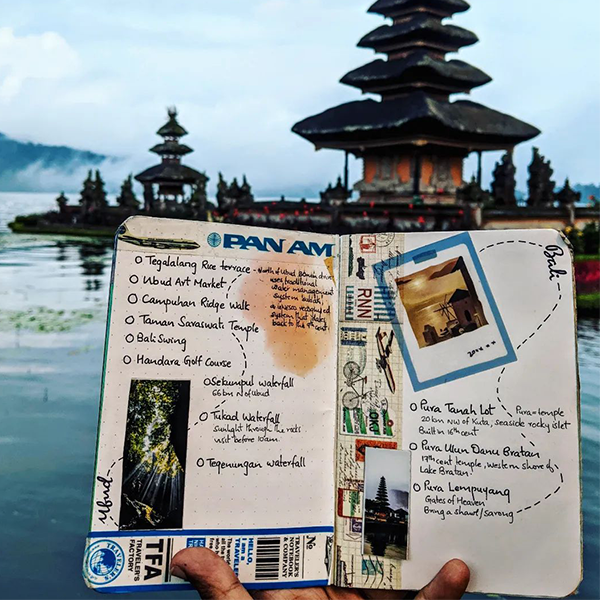 PAN AM
Tegalalang Rice terrace
Ubud Art Market
Campuhan Ridge Walk
Taman Saraswati Temple
Bali Swing
Handara Golf Course
- North of Ubud
uses traditional
water management
system
system that dates
back to the 9th cent.
Sekumpul waterfall
66 km N of ubud
Tukad Waterfall
sunlight through the
visit before 10am
Tegenungan waterfall
Ubud
TRAVELER'S
TFA
TRAVELER'S
FACTORY
HELLO,
I am a
TRAVELER
TRAVELER'S
NOTEBOOK
& COMPANY
No
RUN
Bali
Pura Tanah Lot
Pura = temple
20 km NW of Kuta, seaside rocky islet
Built in 16th cent
Pura Ulun Danu Bratan
17th cent temple, western shore of
Lake Bratan
Pura Lempuyang
Gates of Heaven
Bring a shawl/sarong